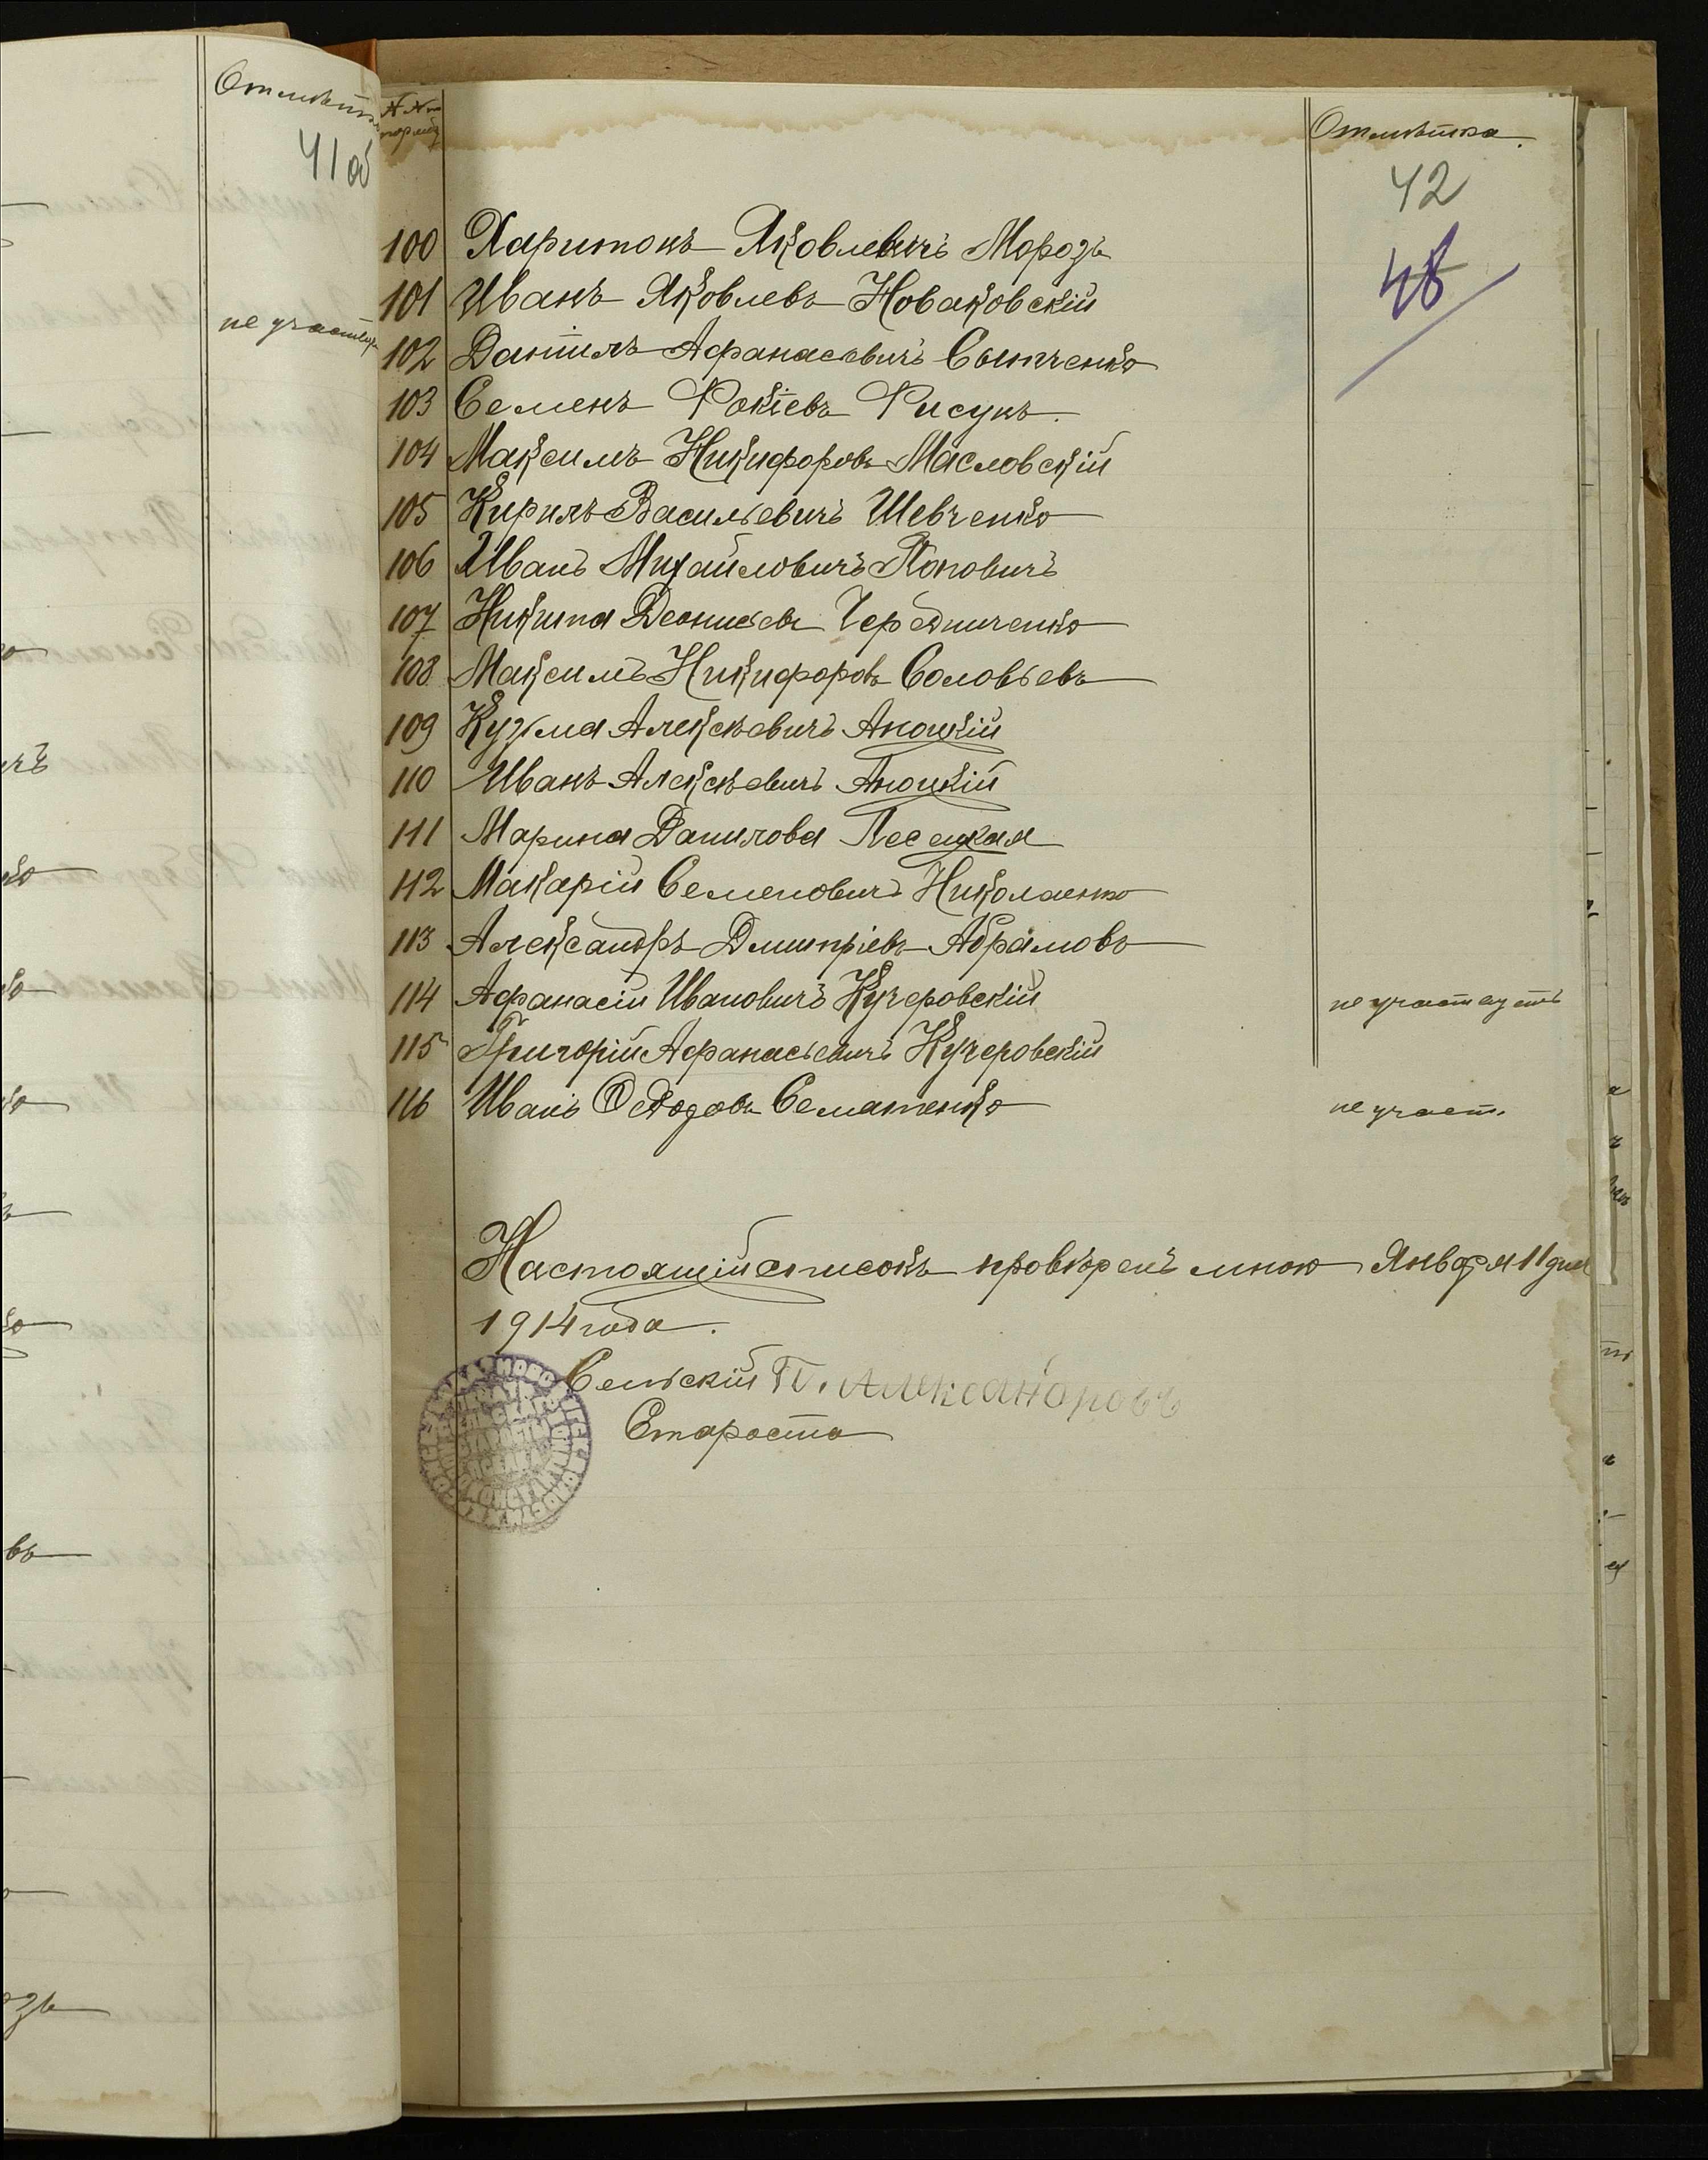 Отмѣтка
41 об
не участвуетъ
№№
Отмѣтка.
42
48
100 Харитонъ Яковлевичъ Морозъ
101 Иванъ Яковлевъ Новаковскій
102 Даніилъ Афанасьевичъ Сытченко
103 Семенъ Фокіевъ Фисунъ.
104 Максимъ Никифоровъ Масловскій
105 Кирилъ Васильевичъ Шевченко
106 Иванъ Михайловичъ Поповичъ
107 Никита Деонисьевъ Чередниченко
108 Максимъ Никифоровъ Соловьевъ
109 Кузма Алексѣевичъ Яноцкій
110 Иванъ Алексѣевичъ Яноцкій
111 Марина Данилова Лесецкая
112 Макарій Семеновичъ Николаенко
113 Александръ Дмитріевъ Абрамовъ
114 Афанасій Ивановичъ Кучеровскій не участвуетъ
115 Григорій Афанасьевичъ Кучеровскій
116 Иванъ Федоровъ Сематенко не участ.
Настоящій списокъ провѣренъ мною Января 11 дня
1914 года.
Сельскій П. Александровъ
Староста